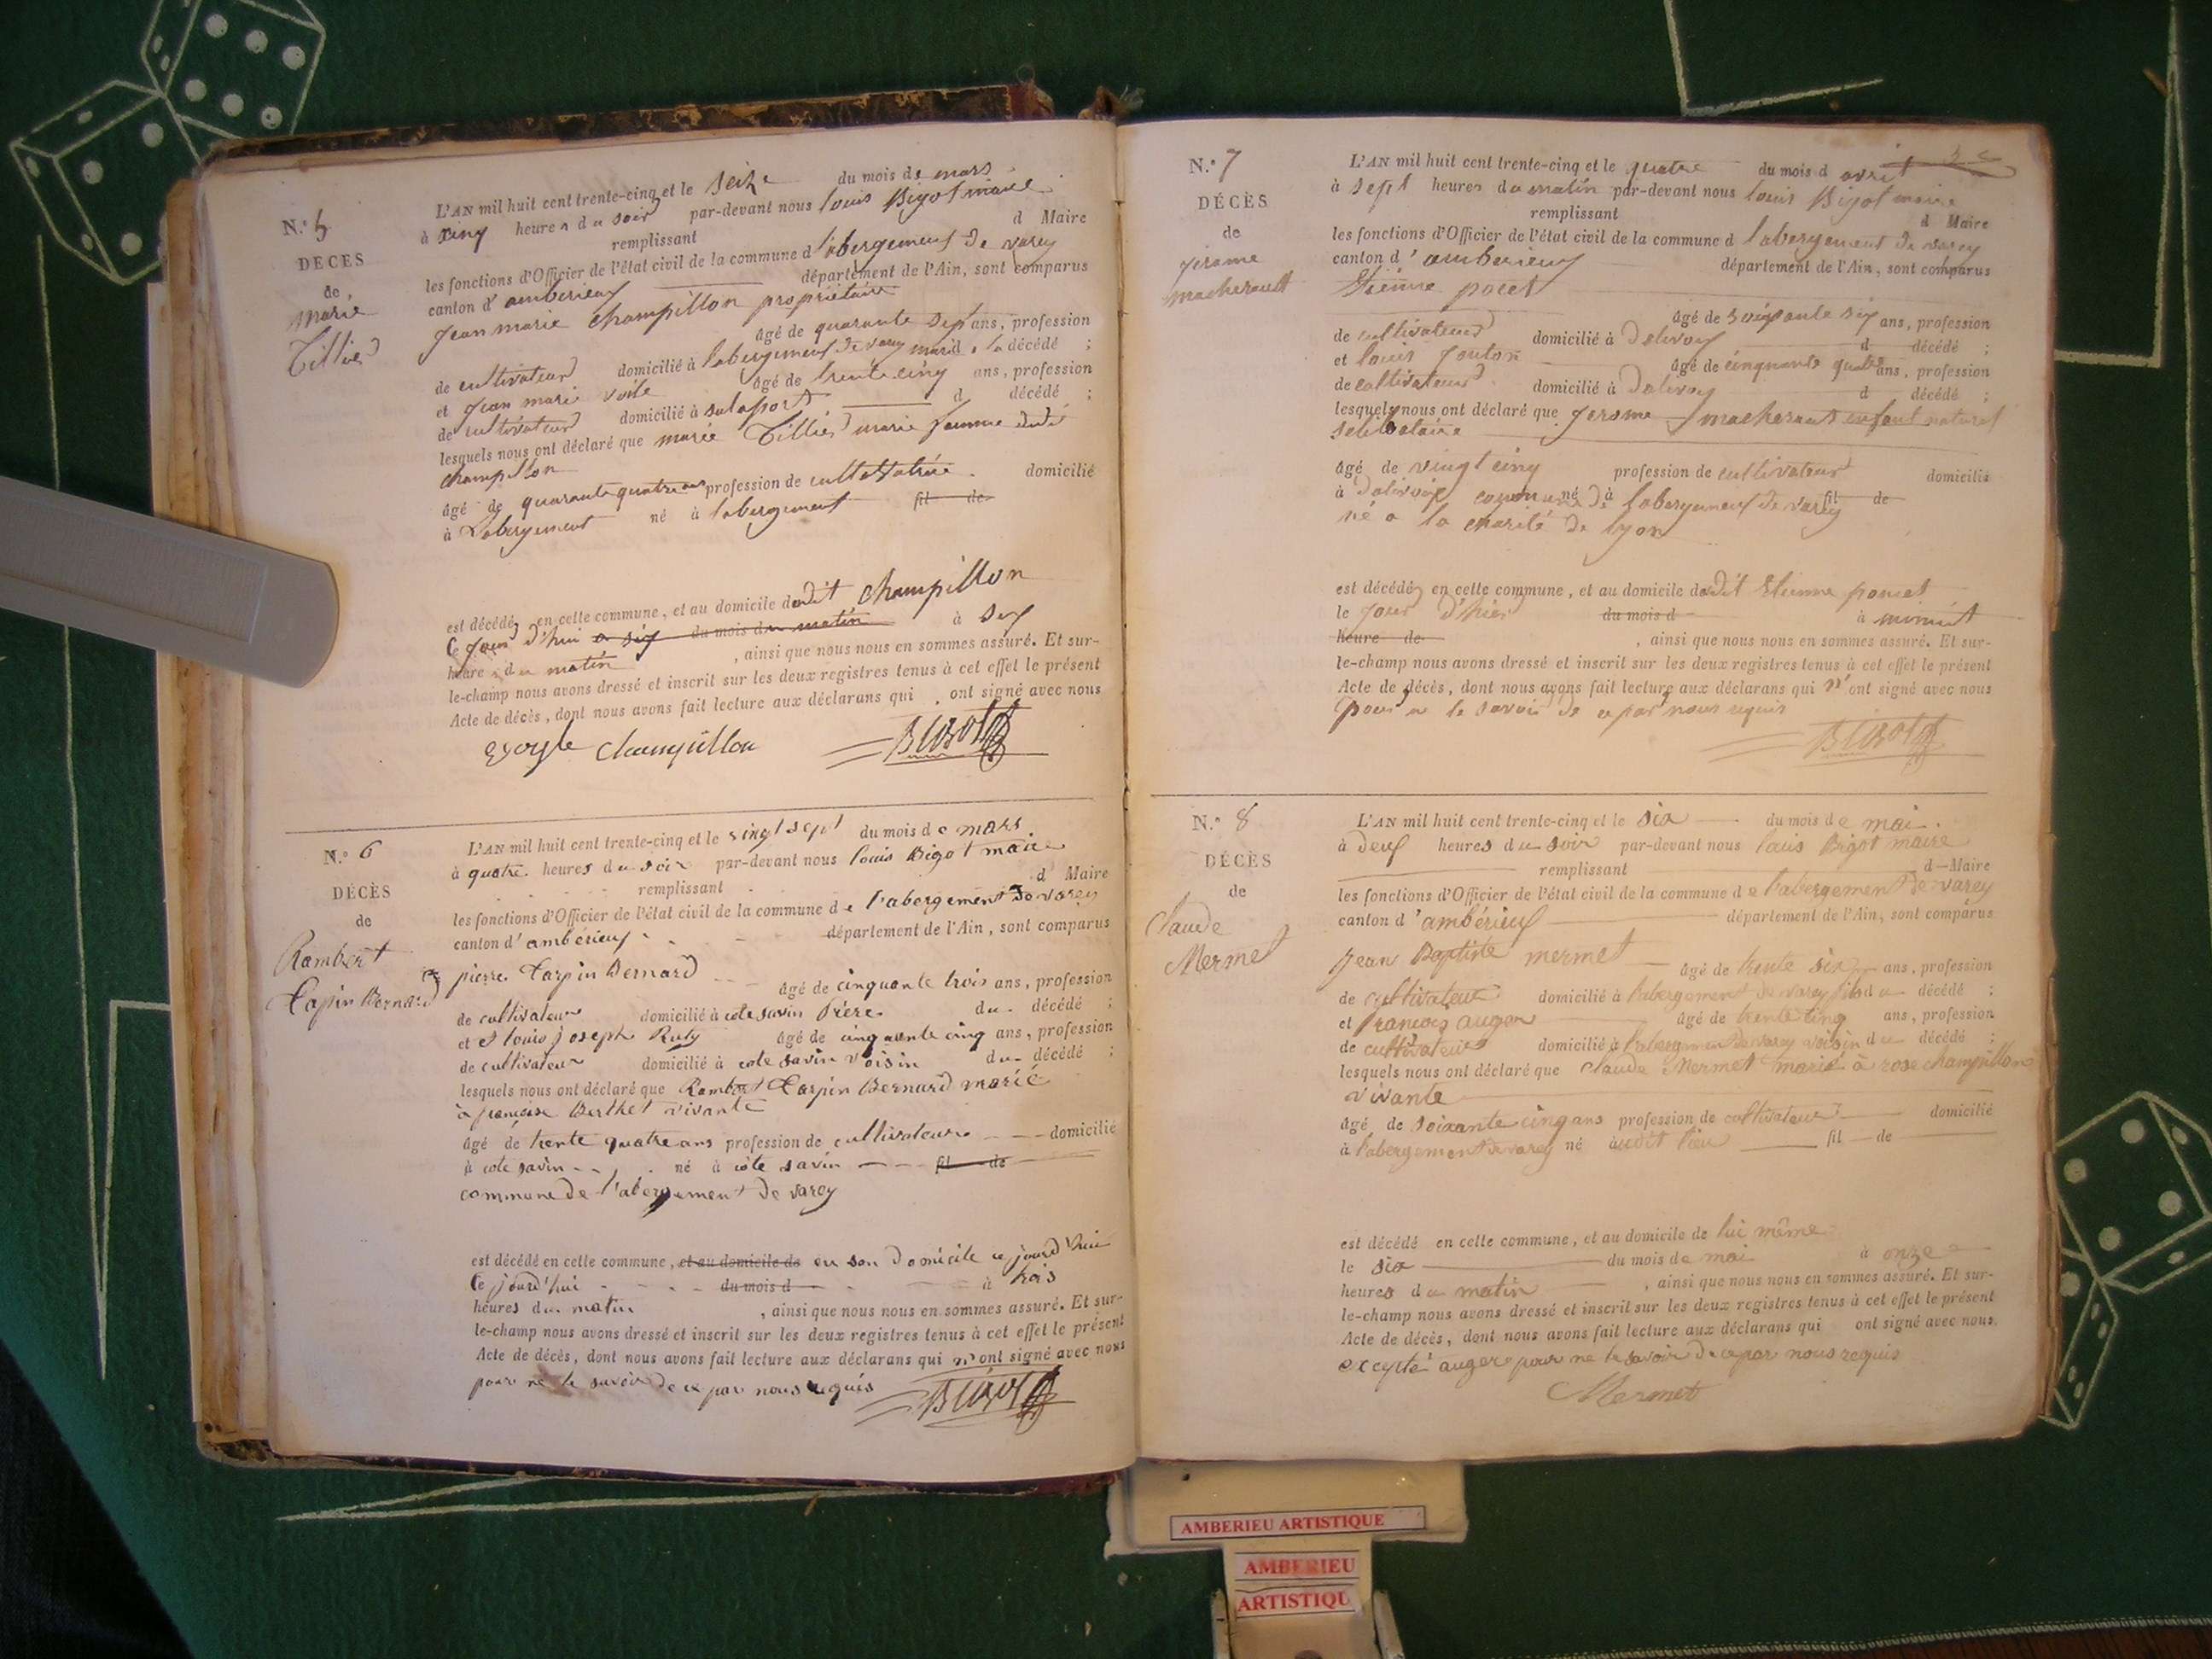 N.° 5
DECES
de
Marie
Tillier
L'AN mil huit cent trente-cinq et le seize du mois de mars
à cinq heures du soir par-devant nous louis Bigot maire
remplissant d Maire
les fonctions d'Officier de l'état civil de la commune d labergement de varey
canton d'amberieux département de l'Ain, sont comparus
Jean marie champillon propriétaire
âgé de quarante sept ans, profession
de cultivateur domicilié à labergement de varey mari de la décédé ;
et Jean marie âgé de trente cinq ans, profession
de cultivateur domicilié à d décédé ;
lesquels nous ont déclaré que marie Tillier femme dudit
champillon
âgé de quarante quatre ans profession de domicilié
à Labergement né à labergement fil de
est décédé en cette commune, et au domicile dudit champillon
ce jour d'hui a six du mois du matin à six
heures du matin , ainsi que nous nous en sommes assuré. Et sur-
le-champ nous avons dressé et inscrit sur les deux registres tenus à cet effet le présent
Acte de décès, dont nous avons fait lecture aux déclarans qui ont signé avec nous
champillon BIGOT
N.° 6
DÉCÈS
de
Rambert
Tarpin Bernard
L'AN mil huit cent trente-cinq et le vingt sept du mois de mars
à quatre heures du soir par-devant nous louis Bigot maire
remplissant d Maire
les fonctions d'Officier de l'état civil de la commune de l'abergement de varey
canton d'ambérieux département de l'Ain, sont comparus
pierre Tarpin Bernard
âgé de cinquante trois ans, profession
de cultivateur domicilié à cote savin frère du décédé ;
et Louis joseph Ruty âgé de cinquante cinq ans, profession
de cultivateur domicilié à cote savin voisin du décédé ;
lesquels nous ont déclaré que Rambert Tarpin Bernard marié
à françoise Berthet vivante
âgé de trente quatre ans profession de cultivateur domicilié
à cote savin né à côte savin fil de
commune de l'abergement de varey
est décédé en cette commune, et au domicile de en son domicile ce jourd'hui
le jourd'hui du mois d à trois
heures du matin , ainsi que nous nous en sommes assuré. Et sur-
le-champ nous avons dressé et inscrit sur les deux registres tenus à cet effet le présent
Acte de décès, dont nous avons fait lecture aux déclarans qui n'ont signé avec nous
pour ne le savoir de ce par nous requis
BIGOT
N.° 7
DÉCÈS
de
Jérome
macherault
L'AN mil huit cent trente-cinq et le quatre du mois d avril
à sept heures du matin par-devant nous louis Bigot maire
remplissant d Maire
les fonctions d'Officier de l'état civil de la commune d labergement de varey
canton d'amberieux département de l'Ain, sont comparus
Etienne poncet
âgé de soixante six ans, profession
de cultivateur domicilié à Dalivoy d décédé ;
et louis âgé de cinquante quatre ans, profession
de cultivateur domicilié à Dalivoy d décédé ;
lesquels nous ont déclaré que Jerome macherault enfant naturel
selibataire
âgé de vingt cinq profession de cultivateur domicilié
à Dalivoy commune né à de labergement de varey fil de
né a la charité de lyon
est décédé en cette commune, et au domicile dudit Etienne poncet
le jour d'hier du mois d à minuit
heure de , ainsi que nous nous en sommes assuré. Et sur-
le-champ nous avons dressé et inscrit sur les deux registres tenus à cet effet le présent
Acte de décès, dont nous avons fait lecture aux déclarans qui n'ont signé avec nous
pour ne le savoir de ce par nous requis
BIGOT
N.° 8
DÉCÈS
de
Claude
Mermet
L'AN mil huit cent trente-cinq et le six du mois de mai
à deux heures du soir par-devant nous louis Bigot maire
remplissant d Maire
les fonctions d'Officier de l'état civil de la commune de l'abergement de varey
canton d'ambérieux département de l'Ain, sont comparus
Jean Baptiste mermet âgé de trente six ans, profession
de cultivateur domicilié à l'abergement de varey fils du décédé ;
et francois auger âgé de trente cinq ans, profession
de cultivateur domicilié à l'abergement de varey voisin du décédé ;
lesquels nous ont déclaré que Claude Mermet marié à rose champillon
vivante
âgé de soixante cinq ans profession de cultivateur domicilié
à l'abergement de varey né audit lieu fil de
est décédé en cette commune, et au domicile de lui même
le six du mois de mai à onze
heures du matin , ainsi que nous nous en sommes assuré. Et sur-
le-champ nous avons dressé et inscrit sur les deux registres tenus à cet effet le présent
Acte de décès, dont nous avons fait lecture aux déclarans qui ont signé avec nous.
excepté auger pour ne le savoir de ce par nous requis
Mermet
AMBERIEU ARTISTIQUE
AMBERIEU
ARTISTIQU